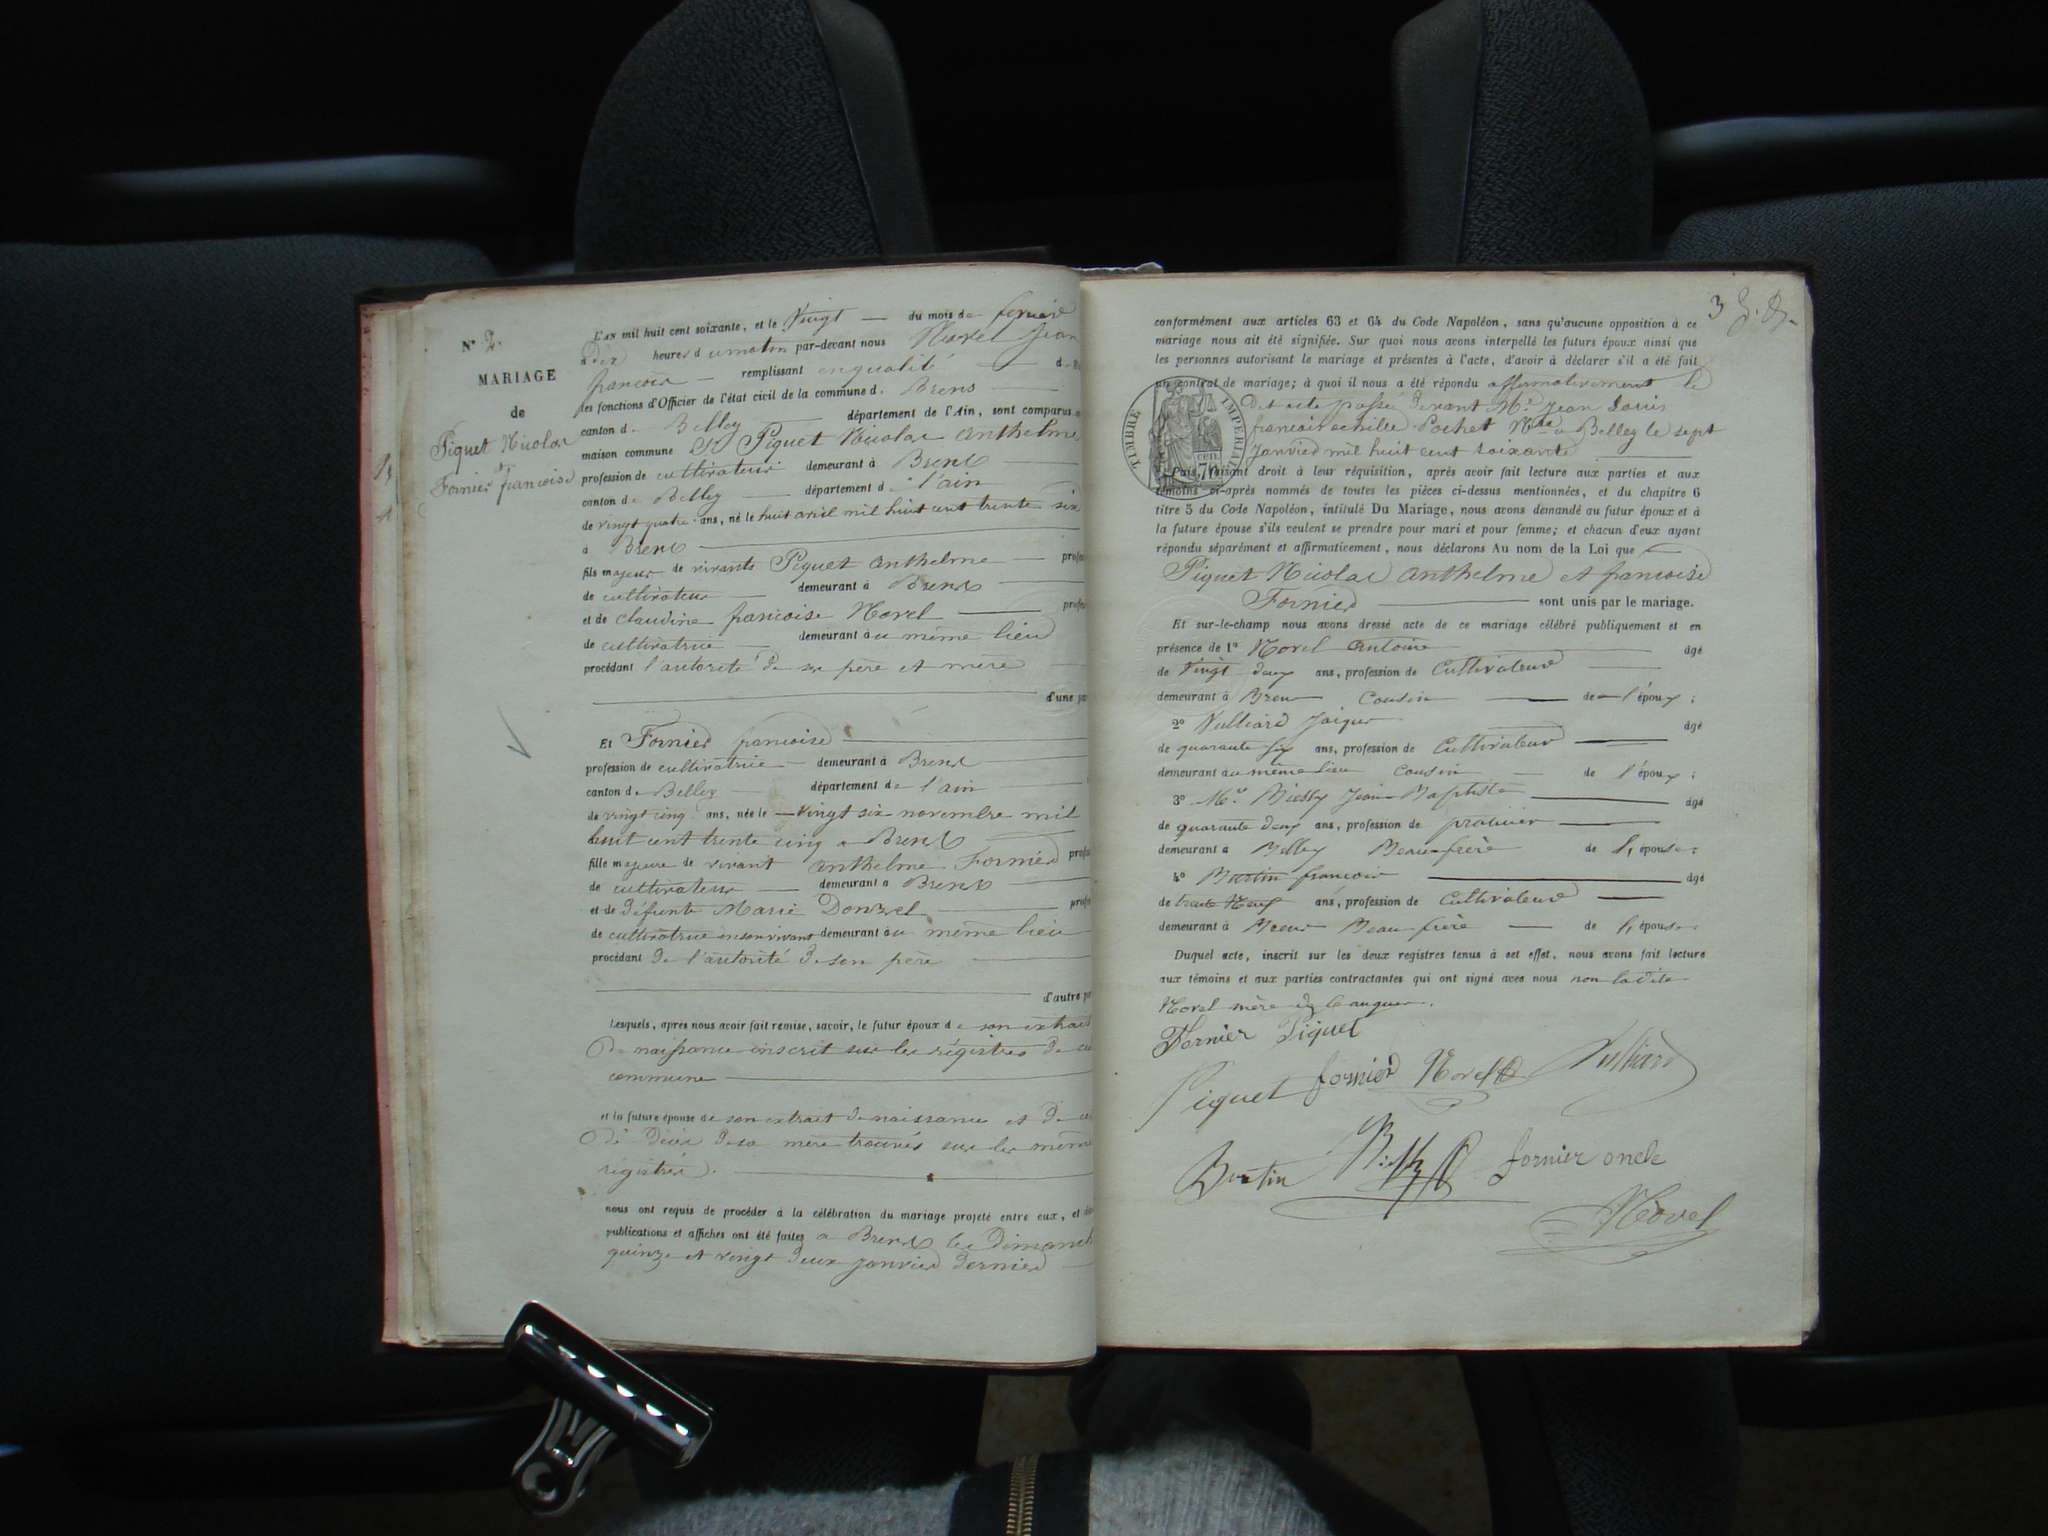 N° 2.
MARIAGE
de
Piquet Nicolas
et
Fornier françoise
L'an mil huit cent soixante, et le Vingt du mois de fevrier
a dix heures d u matin par-devant nous Novel Jean
françois remplissant en qualité d
les fonctions d'Officier de l'état civil de la commune d. Brens
canton d. Belley département de l'Ain, sont comparus
maison commune Sr Piquet Nicolas Anthelme
profession de cultivateur demeurant à Brens
canton de Belley département d l'ain
de vingt quatre ans, né le huit avril mil huit cent trente six
à Brens
fils majeur de vivants Piquet Anthelme profes
de cultivateur demeurant à Brens
et de Claudine francoise Novel profes
de cultivatrice demeurant à u même lieu
procédant l'autorité de ses père et mère
d'une pa
Et Fornier francoise
profession de cultivatrice demeurant à Brens
canton de Belley département de l'ain
de vingt cinq ans, née le vingt six novembre mil
huit cent trente cinq a Brens
fille majeure de vivant Anthelme Fornier profes
de cultivateur demeurant a Brens
et de défunte Marie Donzel profes
de cultivatrice en son vivant demeurant à u même lieu
procédant de l'autorité de son père
d'autre pa
Lesquels, après nous avoir fait remise, savoir, le futur époux d e son extrait
de naissance inscrit sur les régistres de ce
commune
et la future épouse de son extrait de naissance et de ce
de décès de sa mère trouvés sur les même
registres.
nous ont requis de procéder à la célébration du mariage projeté entre eux, et do
publications et affiches ont été faites a Brens les Dimanch
quinze et vingt deux janvier dernier
3
conformément aux articles 63 et 64 du Code Napoléon, sans qu'aucune opposition à ce
mariage nous ait été signifiée. Sur quoi nous avons interpellé les futurs époux ainsi que
les personnes autorisant le mariage et présentes à l'acte, d'avoir à déclarer s'il a été fait
un contrat de mariage; à quoi il nous a été répondu affirmativement le
dit acte passé devant Me. Jean Louis
francois achille Pochet Nre a Belley le sept
janvier mil huit cent soixante
TIMBRE IMPERIAL
cen. 70
Puis, faisant droit à leur réquisition, après avoir fait lecture aux parties et aux
témoins ci-après nommés de toutes les pièces ci-dessus mentionnées, et du chapitre 6
titre 5 du Code Napoléon, intitulé Du Mariage, nous avons demandé au futur époux et à
la future épouse s'ils veulent se prendre pour mari et pour femme; et chacun d'eux ayant
répondu séparément et affirmativement, nous déclarons Au nom de la Loi que
Piquet Nicolas Anthelme et francoise
Fornier sont unis par le mariage.
Et sur-le-champ nous avons dressé acte de ce mariage célébré publiquement et en
présence de 1° Novel Antoine âgé
de Vingt deux ans, profession de Cultivateur
demeurant à Brens Cousin de l'époux;
2° Vulliard Jaique âgé
de quarante six ans, profession de Cultivateur
demeurant au même lieu cousin de l'époux;
3° Mr. Jean Baptiste âgé
de quarante deux ans, profession de
demeurant à Belley Beau-frère de l'épouse;
4° Bertin francois âgé
de trente Neuf ans, profession de Cultivateur
demeurant à Brens Beau frère de l'épouse.
Duquel acte, inscrit sur les deux registres tenus à cet effet, nous avons fait lecture
aux témoins et aux parties contractantes qui ont signé avec nous non la dite
Novel mère de ce enquise.
Fornier Piquet
Piquet fornier Novel Vulliard
Bertin fornier oncle
Novel